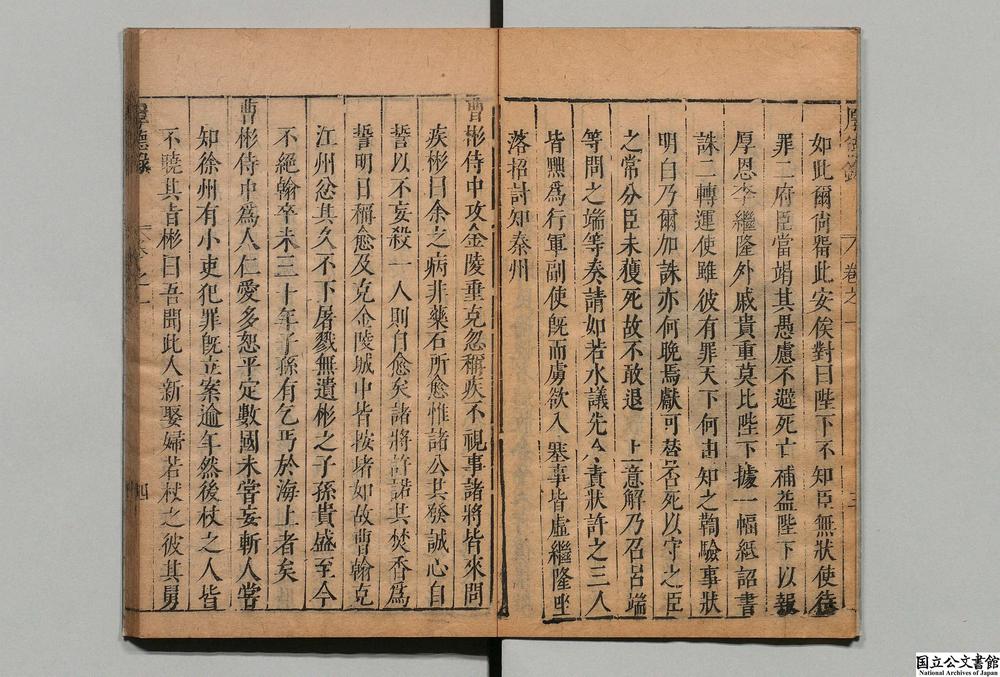 如此爾尙畱此安俟對曰陛下不知臣無狀使待
罪二府臣當竭其愚慮不避死亡補益陛下以報
厚恩李繼隆外戚貴重莫比陛下據一幅紙詔書
誅二轉運使雖彼有罪天下何由知之鞫驗事狀
明白乃爾加誅亦何晚焉獻可替否死以守之臣
之常分臣未獲死故不敢退　上意解乃召呂端
等問之端等奏請如若水議先令責狀許之三人
皆黜爲行軍副使旣而虜欲入塞事皆虛繼隆坐
落招討知秦州
曹彬侍中攻金陵垂克忽稱疾不視事諸將皆來問
疾彬曰余之病非藥石所愈惟諸公共發誠心自
誓以不妄殺一人則自愈矣諸將許諾共焚香爲
誓明日稱愈及克金陵城中皆按堵如故曹翰克
江州忿其久不下屠戮無遺彬之子孫貴盛至今
不絕翰卒未三十年子孫有乞丐於海上者矣
曹彬侍中爲人仁愛多恕平定數國未嘗妄斬人嘗
知徐州有小吏犯罪旣立案逾年然後杖之人皆
不曉其旨彬曰吾聞此人新娶婦若杖之彼其舅
厚德錄
卷之一
四
国立公文書館
National Archives of Japan